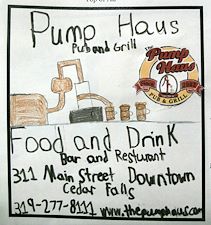 Pump Haus
Pub and Grill
the
Pump
Haus
PUB & GRILL
Food and Drink
Bar and Resturant
311 Main Street Downtown
Cedar Falls
319-277-8111 www.thepumphaus.com